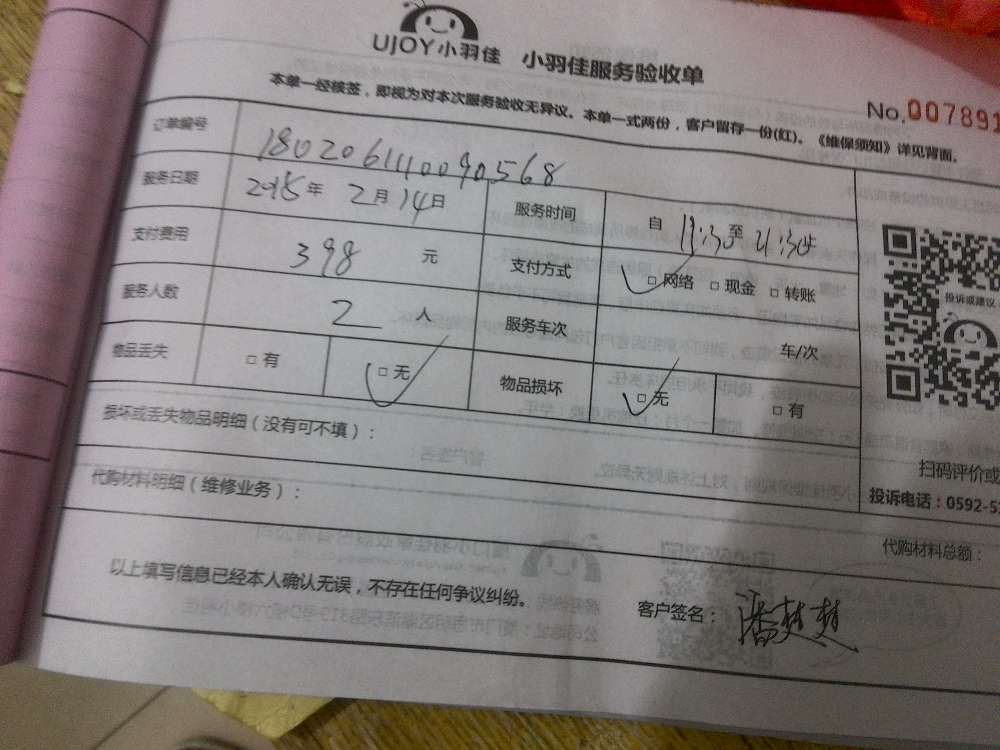 UJOY小羽佳 小羽佳服务验收单
No.007891
本单一经核签，即视为对本次服务验收无异议。本单一式两份，客户留存一份(红)。《维保须知》详见背面。
订单编号 1802061110090568
服务日期 2015年 2月14日 服务时间 自 至
支付费用 398 元 支付方式 □网络 □现金 □转账
服务人数 2 人 服务车次 车/次
物品丢失 □有 □无 物品损坏 □无 □有
投诉或建议
损坏或丢失物品明细（没有可不填）：
扫码评价或
代购材料明细（维修业务）：
投诉电话：0592-5
代购材料总额：
以上填写信息已经本人确认无误，不存在任何争议纠纷。
客户签名：潘